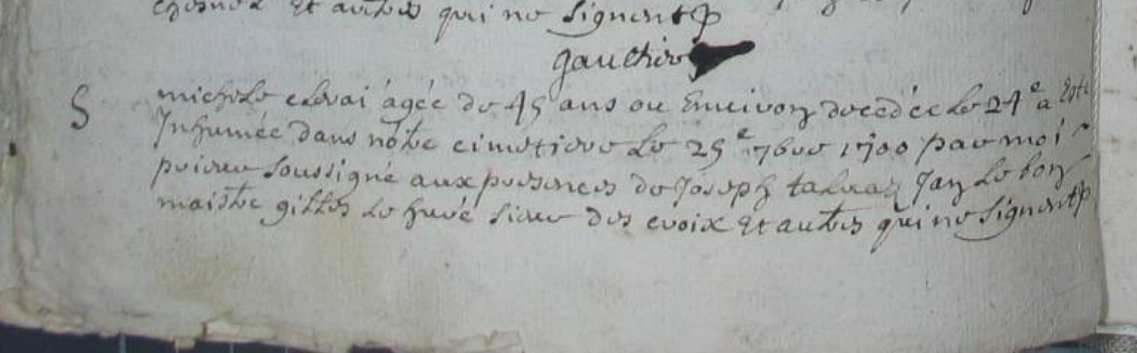 et autres qui ne signent
gauttier
S
michele clerai agée de 45 ans ou Environ decedée le 24e a Esté
Inhumée dans notre cimetiere le 25e 7bre 1700 par moi
prieur soussigné aux presences de Joseph Jan le bon
maistre gilles le huvé sieur des croix Et autres qui ne signent